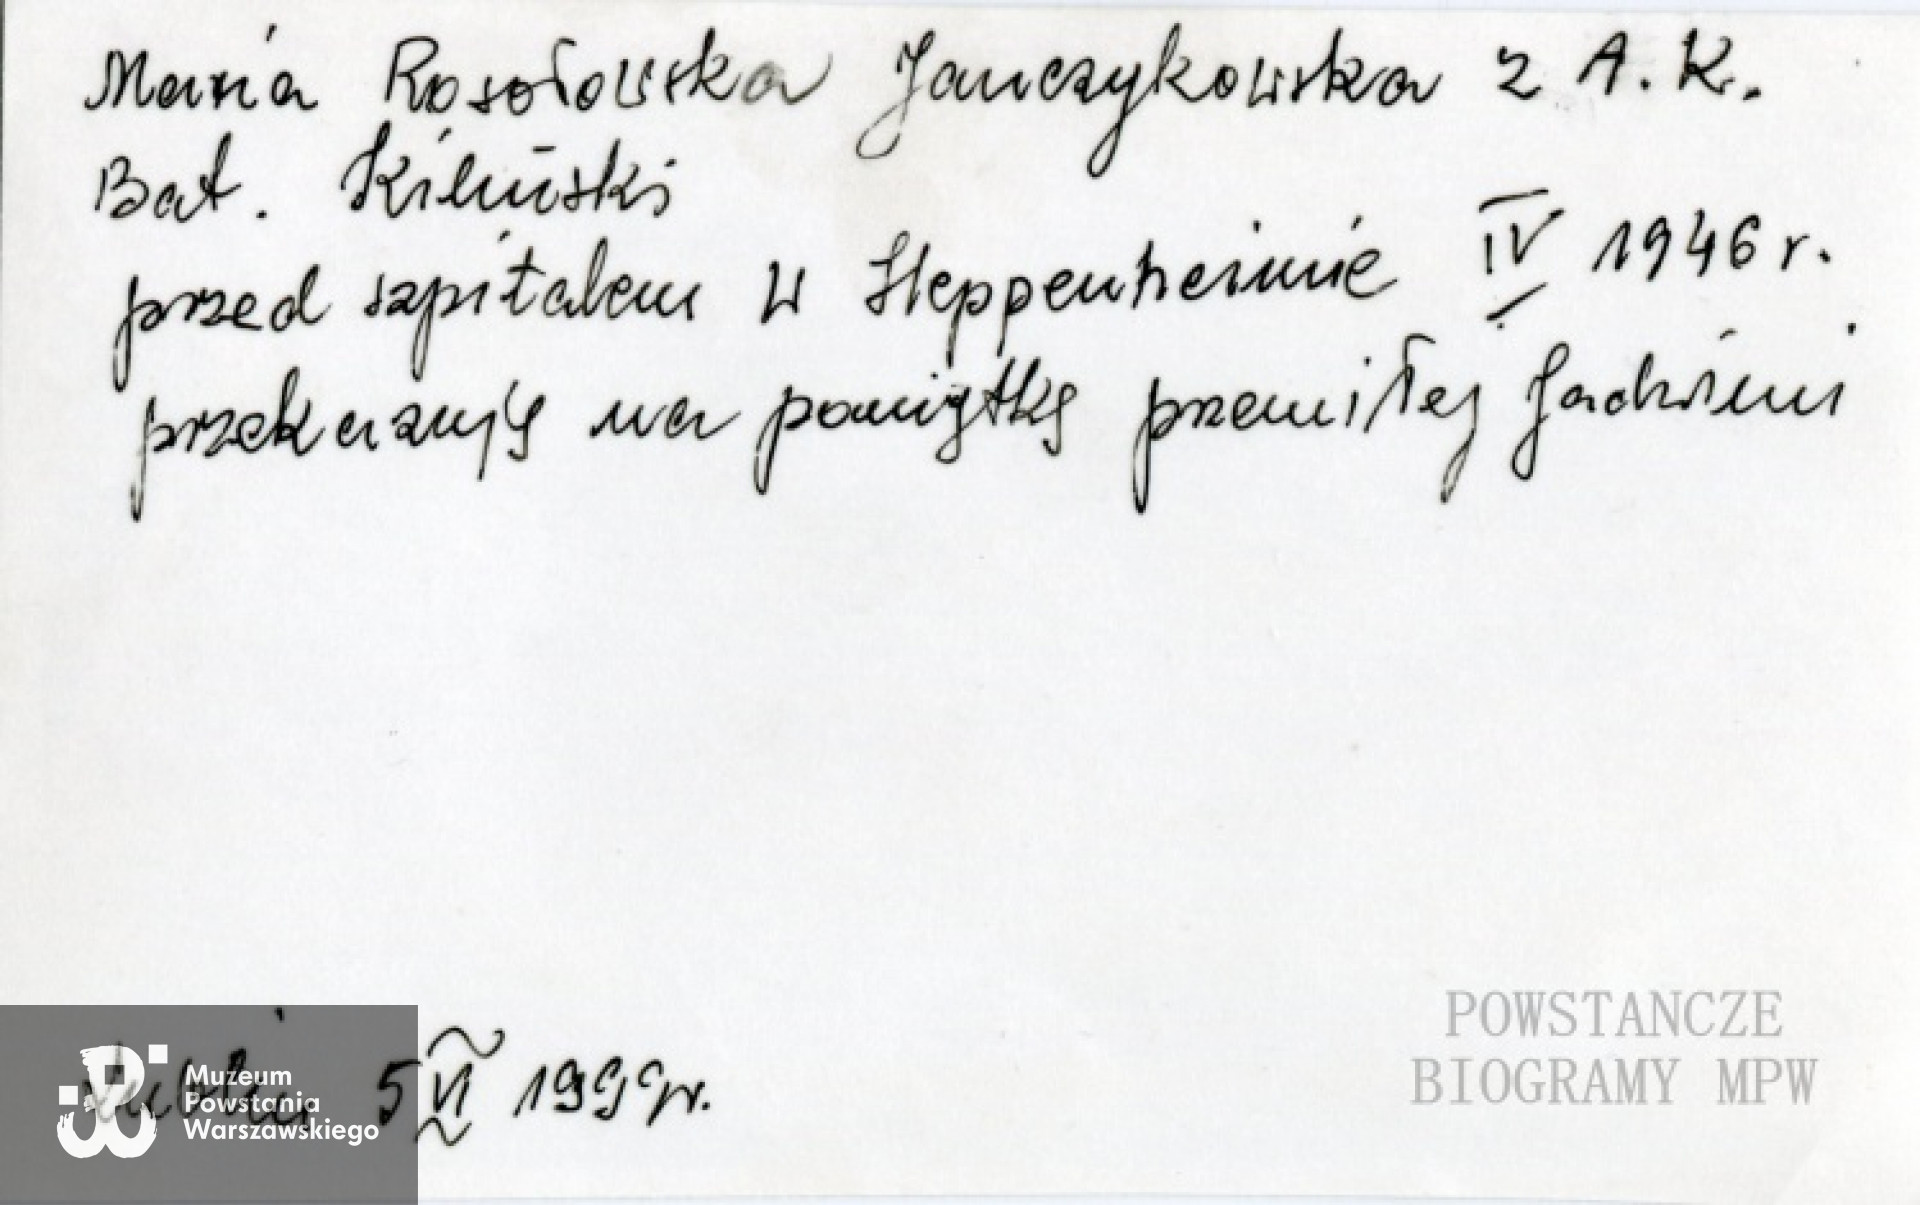 Maria Rosołowska Janczykowska z A.K.
Bat. Kiliński
przed szpitalem w Heppenheimie IV 1946 r.
przekazuję na pamiątkę przemiłej Jadwini
Lublin 5 VI 1999r.
Muzeum
Powstania
Warszawskiego
POWSTANCZE
BIOGRAMY MPW